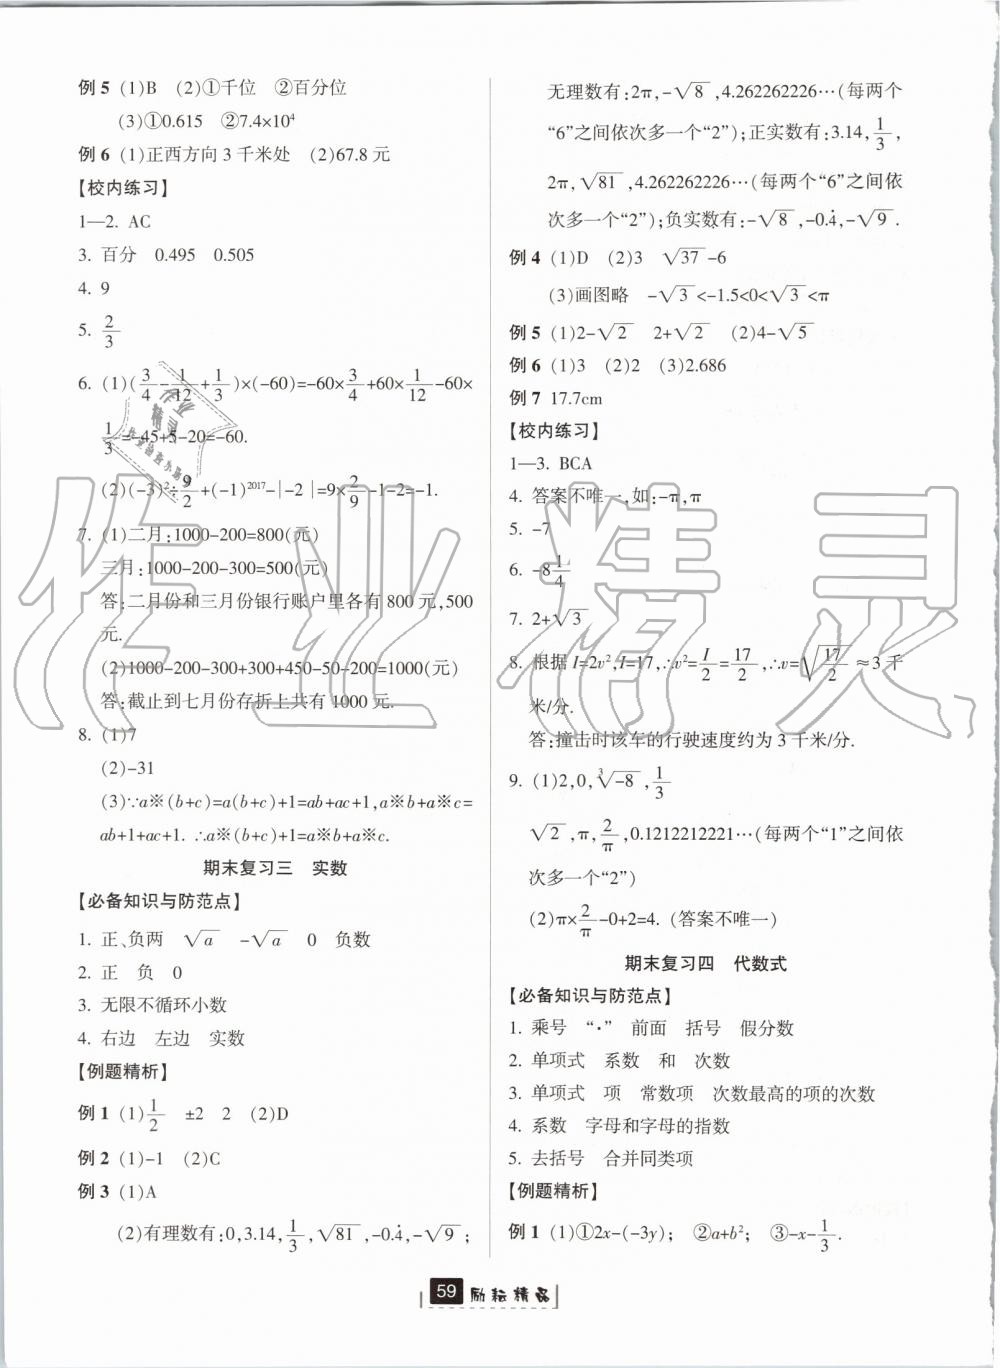 例5 (1)B (2)①千位 ②百分位
(3)①0.615 ②7.4×10⁴
例6 (1)正西方向3千米处 (2)67.8元
【校内练习】
1—2. AC
3. 百分 0.495 0.505
4. 9
5. 2/3
6. (1)(3/4-1/12+1/3)×(-60)=-60×3/4+60×1/12-60×
1/3=-45+5-20=-60.
(2)(-3)²÷9/2+(-1)²⁰¹⁷-|-2|=9×2/9-1-2=-1.
7. (1)二月:1000-200=800(元)
三月:1000-200-300=500(元)
答:二月份和三月份银行账户里各有800元,500
元.
(2)1000-200-300+300+450-50-200=1000(元)
答:截止到七月份存折上共有1000元.
8. (1)7
(2)-31
(3)∵a※(b+c)=a(b+c)+1=ab+ac+1,a※b+a※c=
ab+1+ac+1. ∴a※(b+c)+1=a※b+a※c.
期末复习三 实数
【必备知识与防范点】
1. 正、负两 √a -√a 0 负数
2. 正 负 0
3. 无限不循环小数
4. 右边 左边 实数
【例题精析】
例1 (1)1/2 ±2 2 (2)D
例2 (1)-1 (2)C
例3 (1)A
(2)有理数有:0,3.14,1/3,√81,-0.4̇,-√9;
无理数有:2π,-√8,4.262262226…(每两个
“6”之间依次多一个“2”);正实数有:3.14,1/3,
2π,√81,4.262262226…(每两个“6”之间依
次多一个“2”);负实数有:-√8,-0.4̇,-√9.
例4 (1)D (2)3 √37-6
(3)画图略 -√3<-1.5<0<√3<π
例5 (1)2-√2 2+√2 (2)4-√5
例6 (1)3 (2)2 (3)2.686
例7 17.7cm
【校内练习】
1—3. BCA
4. 答案不唯一,如:-π,π
5. -7
6. -8 1/4
7. 2+√3
8. 根据I=2v²,I=17,∴v²=I/2=17/2,∴v=√(17/2)≈3千
米/分.
答:撞击时该车的行驶速度约为3千米/分.
9. (1)2,0,³√-8,1/3
√2,π,2/π,0.1212212221…(每两个“1”之间依
次多一个“2”)
(2)π×2/π-0+2=4. (答案不唯一)
期末复习四 代数式
【必备知识与防范点】
1. 乘号 “·” 前面 括号 假分数
2. 单项式 系数 和 次数
3. 单项式 项 常数项 次数最高的项的次数
4. 系数 字母和字母的指数
5. 去括号 合并同类项
【例题精析】
例1 (1)①2x-(-3y); ②a+b²; ③-x-1/3.
59 励耘精品
作业精灵